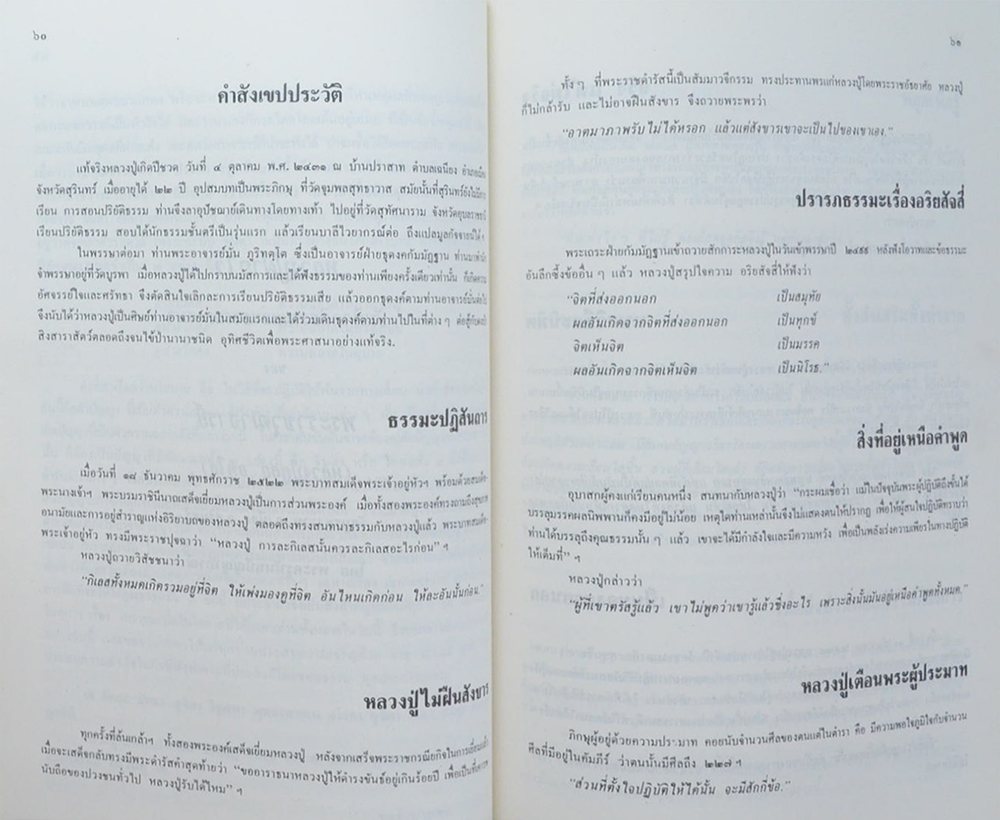 ๖๐
คำสังเขปประวัติ
แท้จริงหลวงปู่เกิดปีชวด วันที่ ๔ ตุลาคม พ.ศ. ๒๔๓๑ ณ บ้านปราสาท ตำบลเฉนียง
จังหวัดสุรินทร์ เมื่ออายุได้ ๒๒ ปี อุปสมบทเป็นพระภิกษุ ที่วัดจุมพลสุทธาวาส สมัยนั้นที่สุรินทร์ยังไม่มีการ
เรียน การสอนปริยัติธรรม ท่านจึงลาอุปัชฌาย์เดินทางโดยทางเท้า ไปอยู่ที่วัดสุทัศนาราม จังหวัดอุบลราชธานี
เรียนปริยัติธรรม สอบได้นักธรรมชั้นตรีเป็นรุ่นแรก แล้วเรียนบาลีไวยากรณ์ต่อ ถึงแปลมูลกัจจายน์ได้ฯ
ในพรรษาต่อมา ท่านพระอาจารย์มั่น ภูริทตฺโต ซึ่งเป็นอาจารย์ฝ่ายธุดงคกัมมัฏฐาน ท่านมาพัก
จำพรรษาอยู่ที่วัดบูรพา เมื่อหลวงปู่ได้ไปกราบนมัสการและได้ฟังธรรมของท่านเพียงครั้งเดียวเท่านั้น ก็เกิดความ
อัศจรรย์ใจและศรัทธา จึงตัดสินใจเลิกการเรียนปริยัติธรรมเสีย แล้วออกธุดงค์ตามท่านอาจารย์มั่นต่อไป
จึงนับได้ว่าหลวงปู่เป็นศิษย์ท่านอาจารย์มั่นในสมัยแรกและได้ร่วมเดินธุดงค์ตามท่านไปในที่ต่าง ๆ ต่อสู้กับ
สิงสาราสัตว์ตลอดถึงจนไข้ป่านานาชนิด อุทิศชีวิตเพื่อพระศาสนาอย่างแท้จริง.
ธรรมะปฏิสันถาร
เมื่อวันที่ ๑๘ ธันวาคม พุทธศักราช ๒๕๒๒ พระบาทสมเด็จพระเจ้าอยู่หัวฯ พร้อมด้วยสมเด็จ
พระนางเจ้าฯ พระบรมราชินีนาถเสด็จเยี่ยมหลวงปู่เป็นการส่วนพระองค์ เมื่อทั้งสองพระองค์ทรงถามถึงสุขภาพ
อนามัยและการอยู่สำราญแห่งอิริยาบถของหลวงปู่ ตลอดถึงทรงสนทนาธรรมกับหลวงปู่แล้ว พระบาทสมเด็จ
พระเจ้าอยู่หัว ทรงมีพระราชปุจฉาว่า “หลวงปู่ การละกิเลสนั้นควรละกิเลสอะไรก่อน” ฯ
หลวงปู่ถวายวิสัชชนาว่า
“กิเลสทั้งหมดเกิดรวมอยู่ที่จิต ให้เพ่งมองดูที่จิต อันไหนเกิดก่อน ให้ละอันนั้นก่อน”
หลวงปู่ไม่ฝืนสังขาร
ทุกครั้งที่ล้นเกล้าฯ ทั้งสองพระองค์เสด็จเยี่ยมหลวงปู่ หลังจากเสร็จพระราชกรณียกิจในการเยี่ยมแล้ว
เมื่อจะเสด็จกลับทรงมีพระดำรัสคำสุดท้ายว่า “ขออาราธนาหลวงปู่ให้ดำรงขันธ์อยู่เกินร้อยปี เพื่อเป็นที่เคารพ
นับถือของปวงชนทั่วไป หลวงปู่รับได้ไหม” ฯ
๖๑
ทั้งๆ ที่พระราชดำรัสนี้เป็นสัมมาวจีกรรม ทรงประทานพรแก่หลวงปู่โดยพระราชอัธยาศัย หลวงปู่
ก็ไม่กล้ารับ และไม่อาจฝืนสังขาร จึงถวายพระพรว่า
“อาตมาภาพรับไม่ได้หรอก แล้วแต่สังขารเขาจะเป็นไปของเขาเอง.”
ปรารภธรรมะเรื่องอริยสัจสี่
พระเถระฝ่ายกัมมัฏฐานเข้าถวายสักการะหลวงปู่ในวันเข้าพรรษาปี ๒๔๙๙ หลังฟังโอวาทและข้อธรรมะ
อันลึกซึ้งข้ออื่น ๆ แล้ว หลวงปู่สรุปใจความ อริยสัจสี่ให้ฟังว่า
“จิตที่ส่งออกนอก เป็นสมุทัย
ผลอันเกิดจากจิตที่ส่งออกนอก เป็นทุกข์
จิตเห็นจิต เป็นมรรค
ผลอันเกิดจากจิตเห็นจิต เป็นนิโรธ.”
สิ่งที่อยู่เหนือคำพูด
อุบาสกผู้คงแก่เรียนคนหนึ่ง สนทนากับหลวงปู่ว่า “กระผมเชื่อว่า แม้ในปัจจุบันพระผู้ปฏิบัติถึงขั้นได้
บรรลุมรรคผลนิพพานก็คงมีอยู่ไม่น้อย เหตุใดท่านเหล่านั้นจึงไม่แสดงตนให้ปรากฏ เพื่อให้ผู้สนใจปฏิบัติทราบว่า
ท่านได้บรรลุถึงคุณธรรมนั้น ๆ แล้ว เขาจะได้มีกำลังใจและมีความหวัง เพื่อเป็นพลังเร่งความเพียรในทางปฏิบัติ
ให้เต็มที่” ฯ
หลวงปู่กล่าวว่า
“ผู้ที่เขาตรัสรู้แล้ว เขาไม่พูดว่าเขารู้แล้วซึ่งอะไร เพราะสิ่งนั้นมันอยู่เหนือคำพูดทั้งหมด.”
หลวงปู่เตือนพระผู้ประมาท
ภิกษุผู้อยู่ด้วยความประมาท คอยนับจำนวนศีลของตนแต่ในตำรา คือ มีความพอใจภูมิใจกับจำนวน
ศีลที่มีอยู่ในคัมภีร์ ว่าตนนั้นมีศีลถึง ๒๒๗ฯ
“ส่วนที่ตั้งใจปฏิบัติให้ได้นั้น จะมีสักกี่ข้อ.”